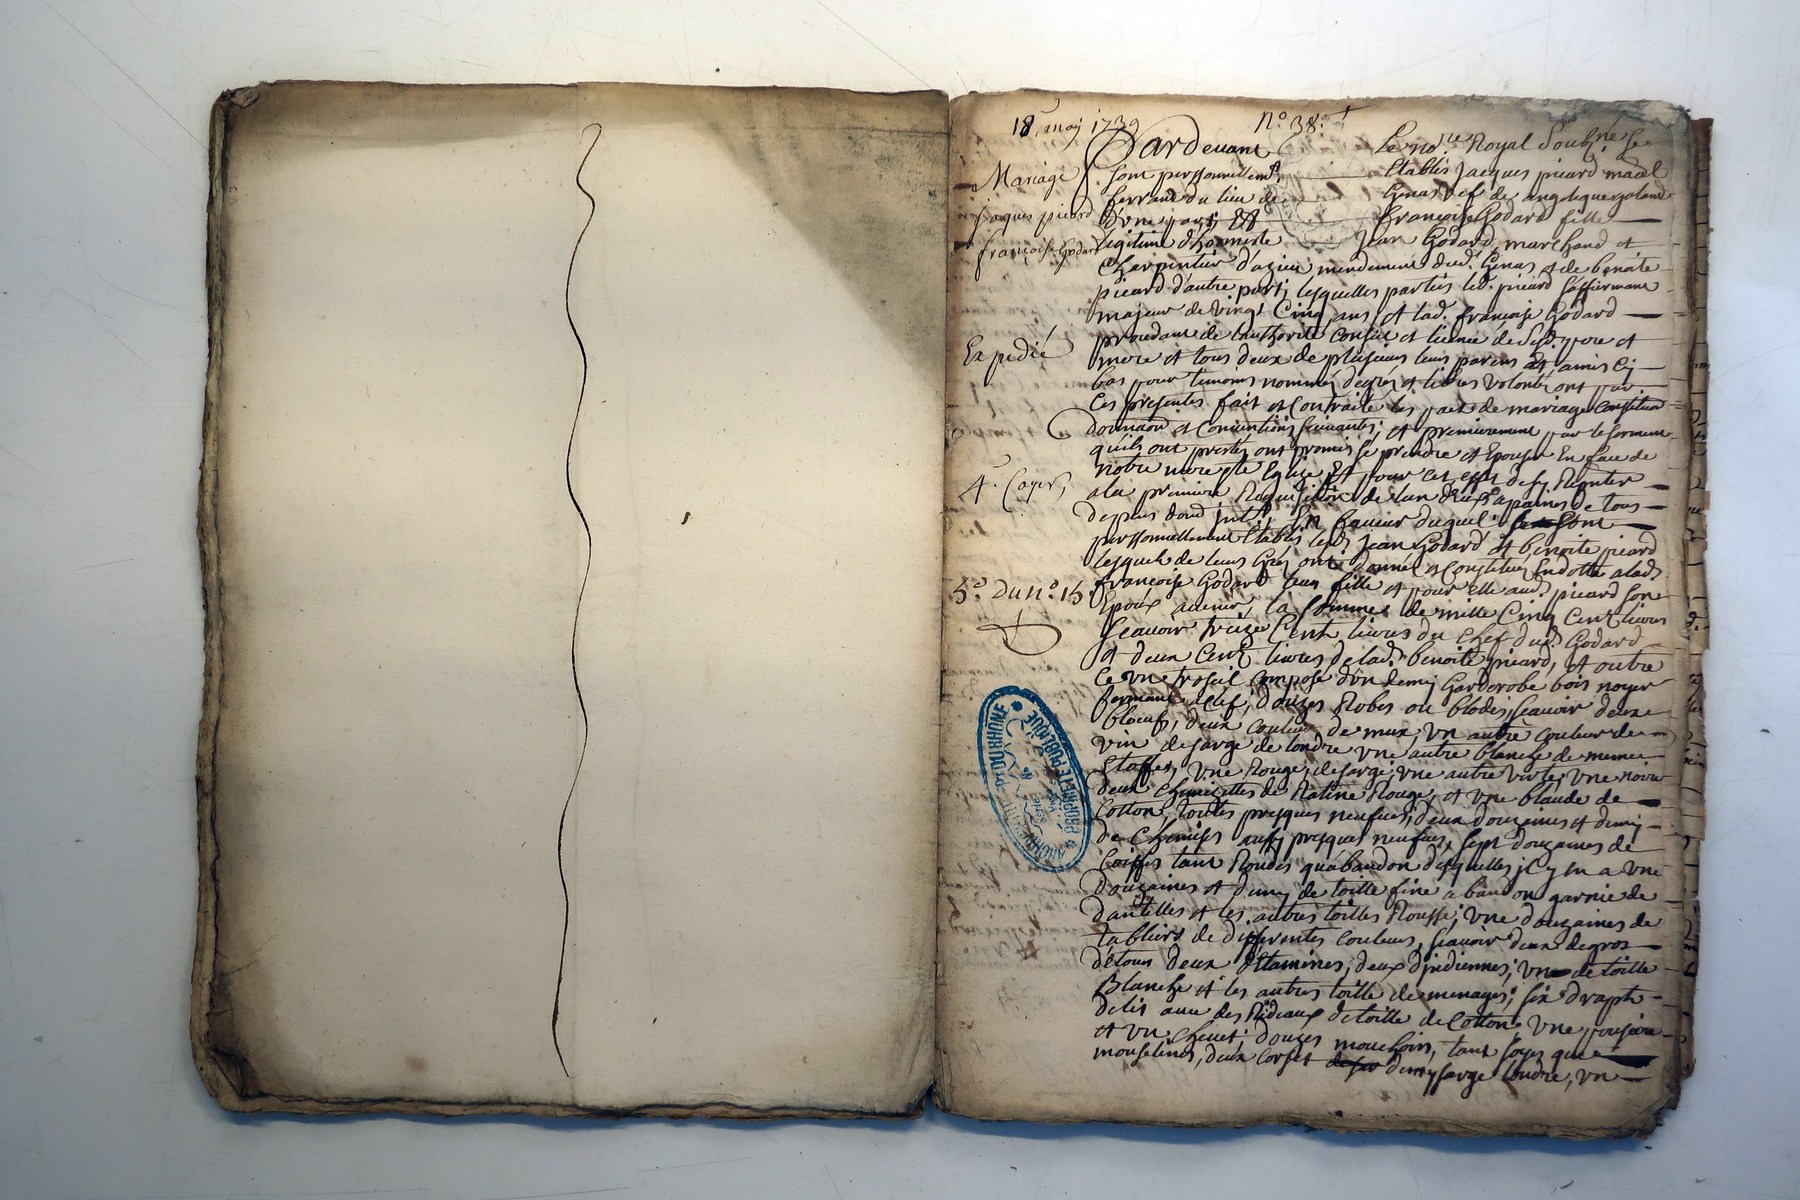 18 may 1739
N.° 38.
Mariage
jaques picard
françoise Godard
Expedié
4.e Cayer,
5.e du n.° 15
Pardevant Le no.re Royal Soubz.né Se
sont personnellem.t Etablis Jacques picard maral
ferrand du lieu de Genas de
d'une part, Et françoise Godard fille
Legitime d'honneste Jean Godard, marchand et
Charpentier d'azieu mendement dud. Genas et de benoite
picard d'autre part; lesquelles parties led. picard s'affirmant
majeur de vingt Cinq ans, et lad. françoise Godard
procedant de l'authorité conseil et licence de Sesd. pere et
mere et tous deux de plusieurs leurs parens et amis Cy
bas pour temoins nommés de gré et libres volontés ont par
Ces presentes fait et Contracté les pact de mariage Constitution
donnaon et Conventions suivantes; et premierement par le serment
qu'ils ont presté, ont promis se prendre et Epouser En face de
notre mere s.te Eglise Et pour cet effet de sy
a la premiere Requisition de l'un d'Eux a peines de tous
depens dom intt. En faveur duquel Sont
personnellement Etablis lesd. Jean Godard et benoite picard
lesquels de leurs Grés ont donné et Constitué En dotte a lad.
françoise Godard leur fille et pour Elle aud. picard son
Epoux avenir, la Somme de mille Cinq Cent livres
Scavoir treize Cent livres du Chef dud. Godard
et deux Cent livres de lad. benoite picard, et outre
Ce un trosel Composé d'un demy Garderobe bois noyer
fermant a Clef, douzes Robes ou blodes, Scavoir deux
bloeuf, deux couleur de mur, un autre Couleur de
vin de sarge de londre une autre blanche de meme
Etoffes, Une Rouge, de sarge, une autre verte, une noire
deux Chemisettes de Ratine Rouge, et une blaude de
Cotton, toutes presques neufves; deux douzaines et demy
de Chemises aussy presques neufves, Sept douzaines de
Coiffes tant Rondes qu'abandon desquelles jl y En a une
douzaines et demy de toille fine a bandon garnie de
dantelles et les autres toilles Rousse; Une douzaines de
tabliers de differentes Couleurs, Scavoir deux de gros
détour deux D'Etamines, deux d'jndiennes, un de toille
Blanche et les autres toille de menages; six draps
de lit avec des Rideaux de toille de Cotton, Une
et un Chevet; douzes mouchoirs, tant soyes que
mouselines, deux Corset demy sarge londre, un
ARCHIVES DU RHONE
PROPRIÉTÉ PUBLIQUE